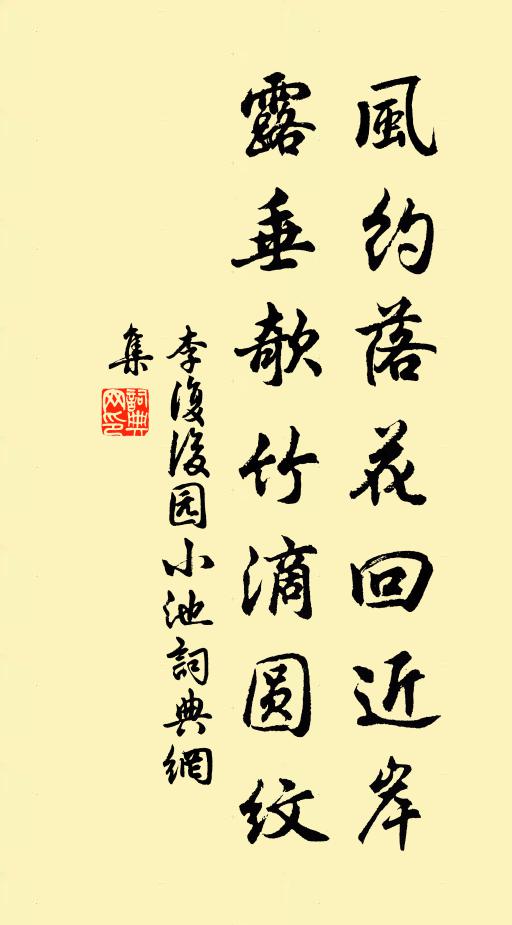 風約落花回近岸
露垂欹竹滴圆紋
李復後园小池詞典網
集
詞典
网印